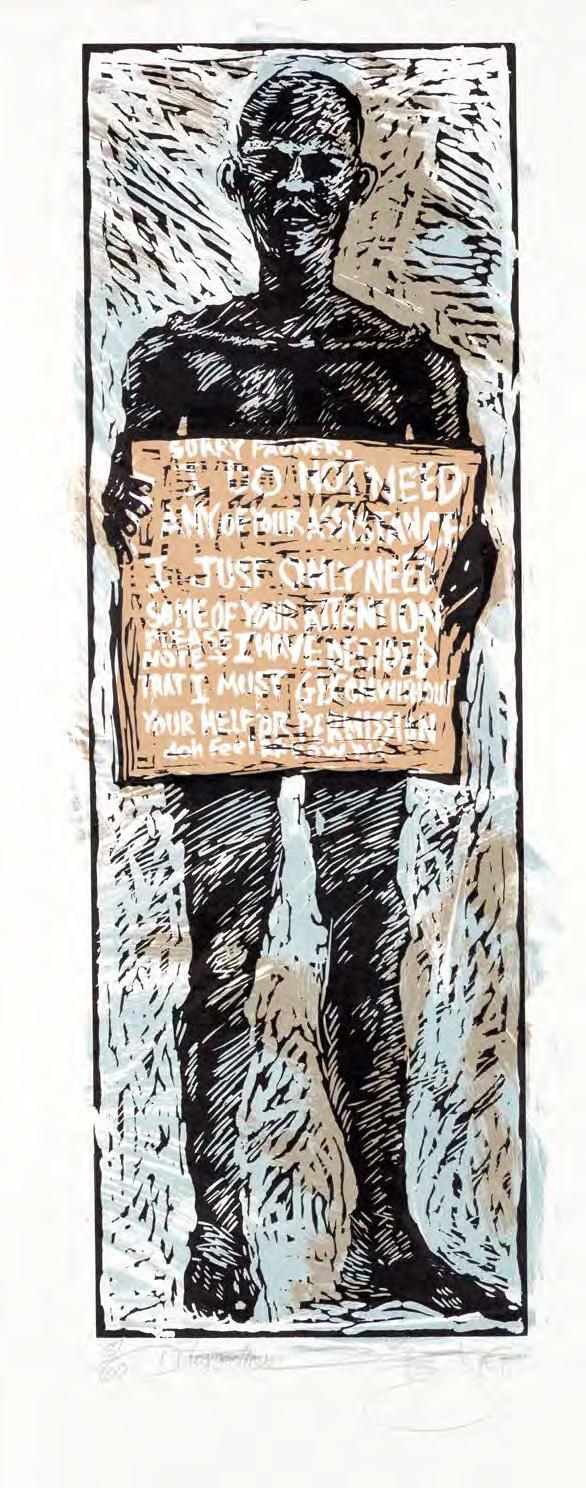 SORRY
I DO NOT NEED
ANY OF YOUR ASSISTANCE
I JUST ONLY NEED
SOME OF YOUR ATTENTION
PLEASE
NOTE I HAVE DECIDED
THAT I MUST GET ON WITHOUT
YOUR HELP OR PERMISSION
doh feel